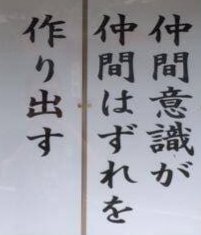 仲間意識が
仲間はずれを
作り出す